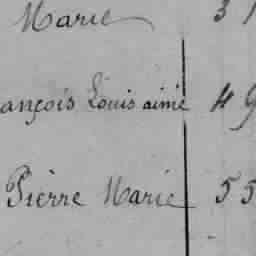 Marie 31
ançois Louis aimé 49
Pierre Marie 55